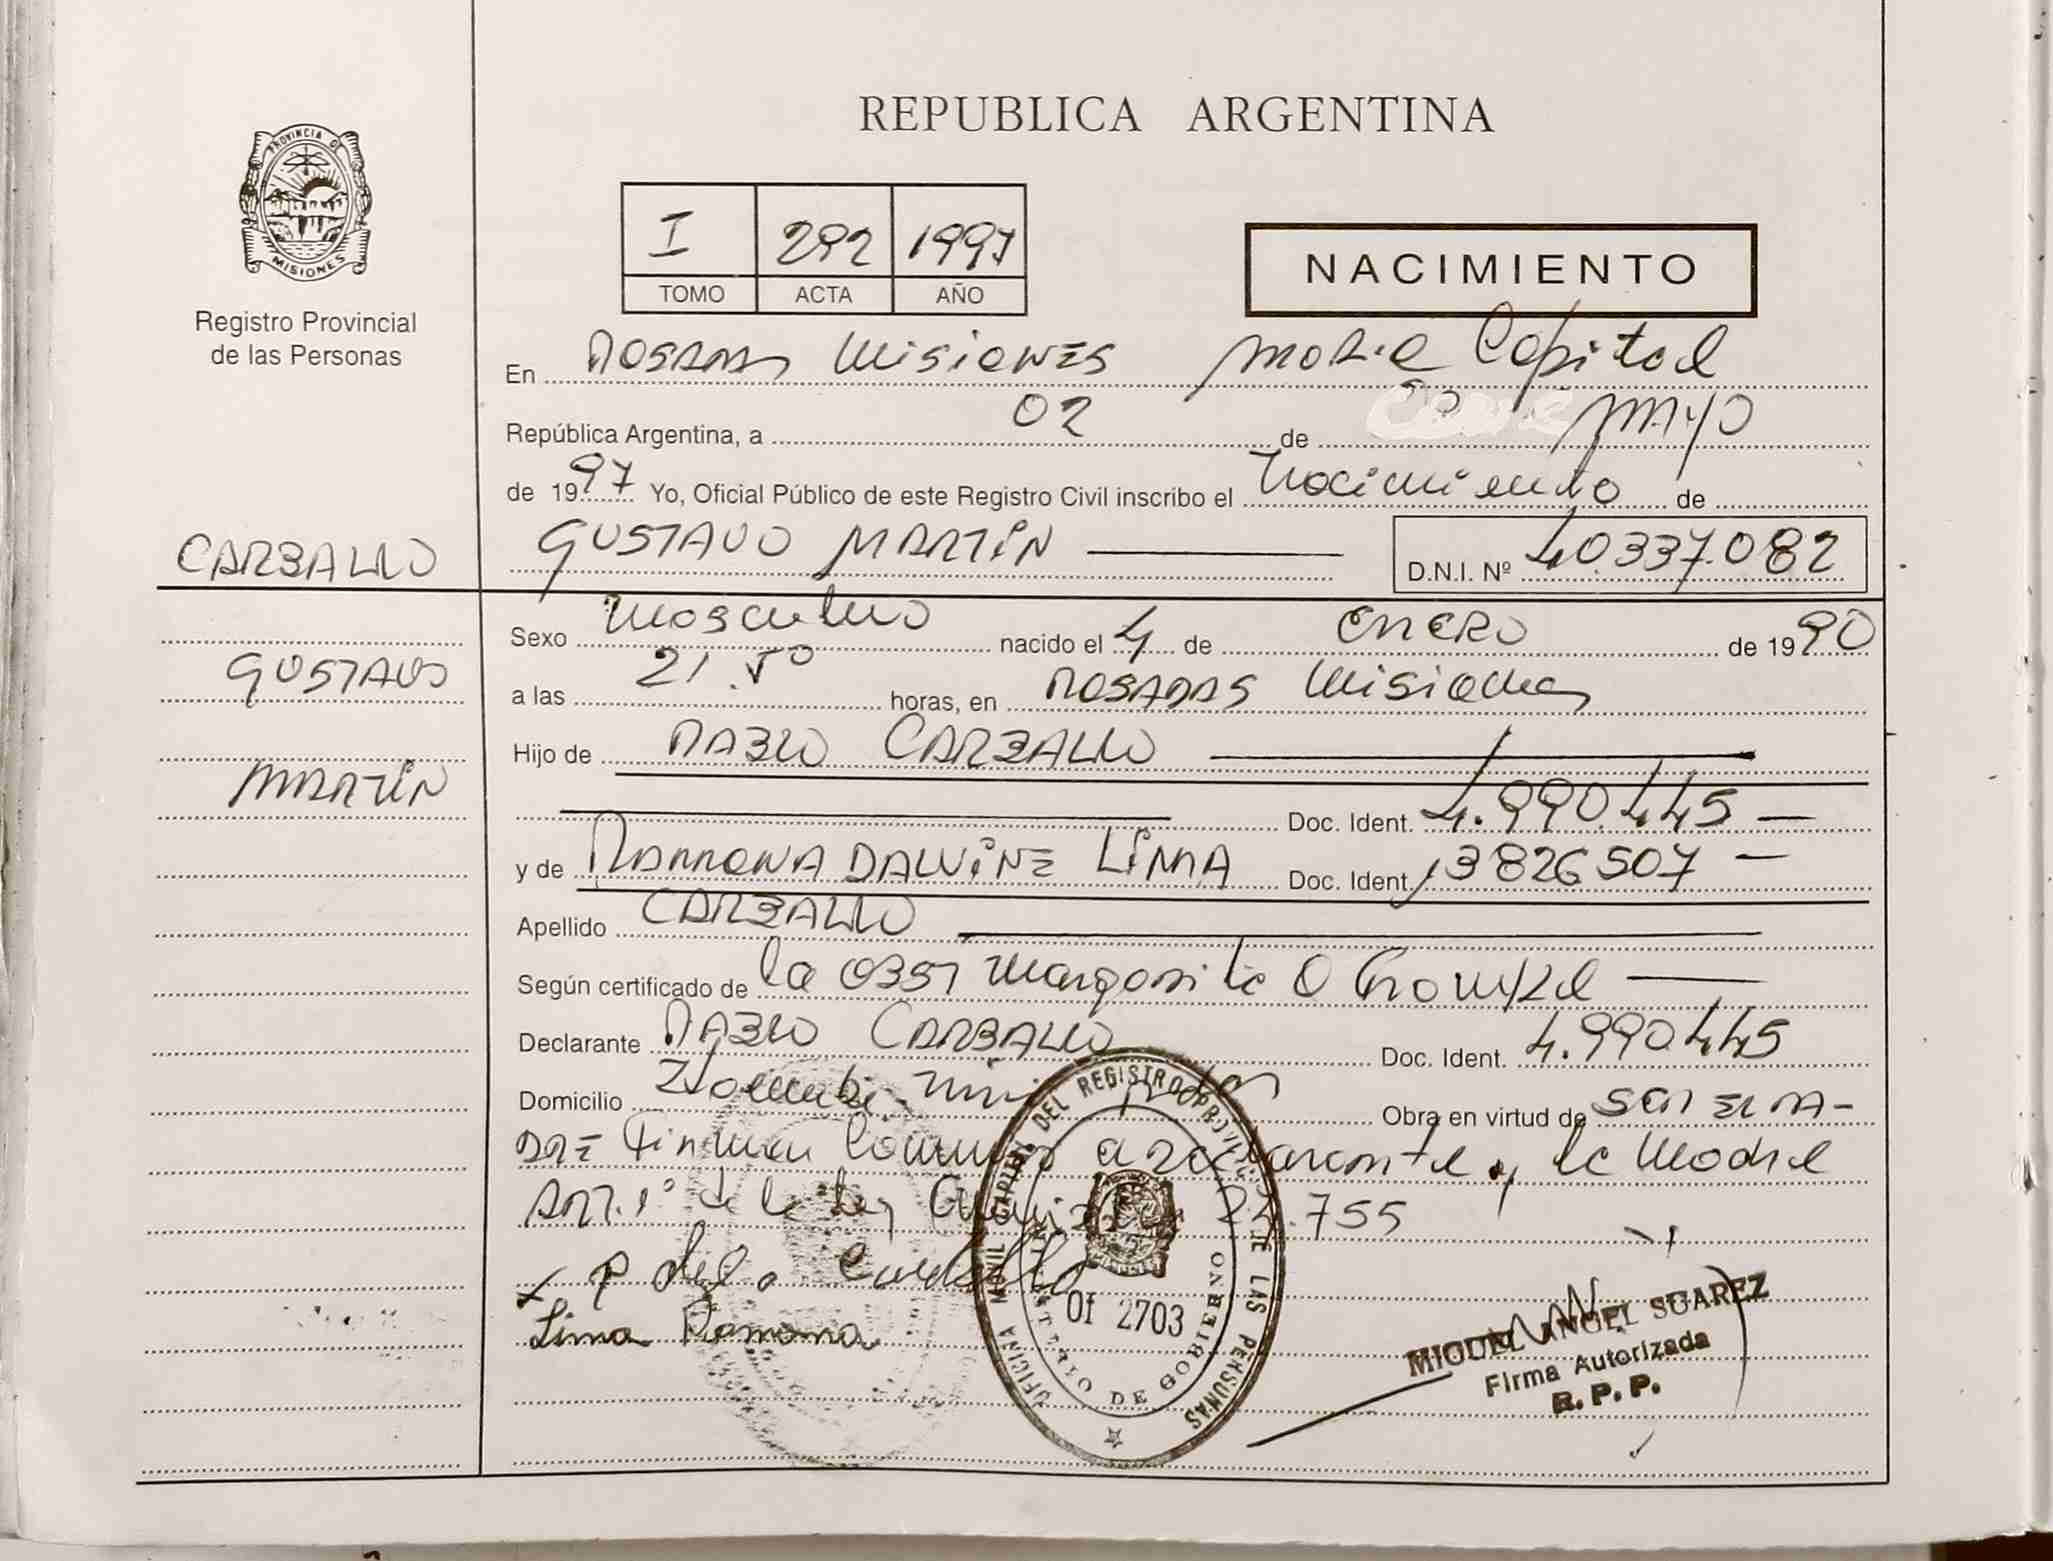 REPUBLICA ARGENTINA
PROVINCIA DE
MISIONES
Registro Provincial
de las Personas
I 292 1997
TOMO ACTA AÑO
NACIMIENTO
En POSADAS MISIONES Capital
República Argentina, a 02 de MAYO
de 1997 Yo, Oficial Público de este Registro Civil inscribo el Nacimiento de
CARBALLO
GUSTAVO MARTIN D.N.I. Nº 40.337.082
Sexo Masculino nacido el 4 de ENERO de 1990
GUSTAVO
a las 21. horas, en POSADAS Misiones
Hijo de PABLO CARBALLO
MARTIN
Doc. Ident. 4.990.445
y de RAMONA DALVINE LIMA Doc. Ident. 13826507
Apellido CARBALLO
Según certificado de la
Declarante PABLO CARBALLO Doc. Ident. 4.990.445
Domicilio Obra en virtud de SER EL PA-
DRE Firman declarante y la Madre
ART. 1º de la Ley 24.755
Lima Ramona
OFICINA MOVIL CAPITAL DEL REGISTRO PROVINCIAL DE LAS PERSONAS
MINISTERIO DE GOBIERNO
Of 2703
MIGUEL ANGEL SUAREZ
Firma Autorizada
R. P. P.